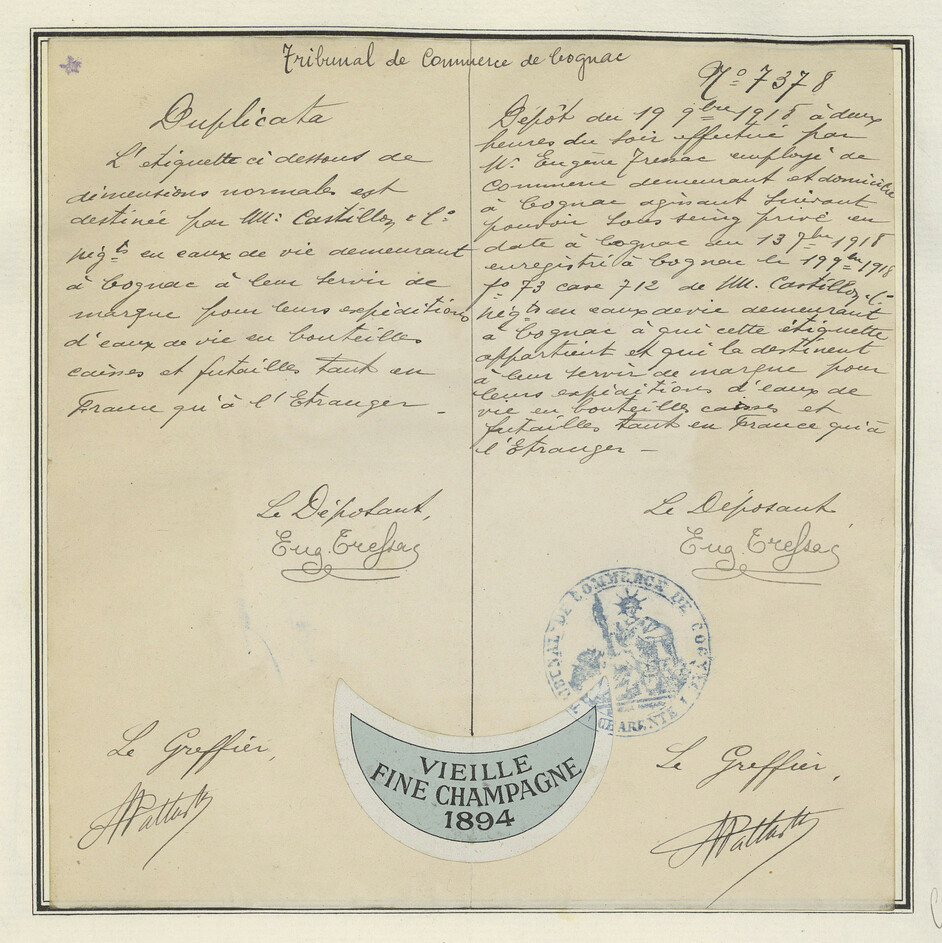 Tribunal de Commerce de Cognac
Nº 7378
Duplicata
L'etiquette ci dessous de
dimensions normales est
destinée par MM. Castillon & Cº
négts en eaux de vie demeurant
à Cognac à leur servir de
marque pour leurs expéditions
d'eaux de vie en bouteilles
caisses et futailles tant en
France qu'à l'Etranger _
Le Déposant,
Le Greffier,
Dépôt du 19 9bre 1918 à deux
heures du soir effectué par
Mr. Eugène employé de
commerce demeurant et domicilié
à Cognac agissant suivant
pouvoir sous seing privé en
date à Cognac du 13 7bre 1918
enregistré à Cognac le 19 9bre 1918
fº 73 case 712 de MM. Castillon & Cº
négts en eaux de vie demeurant
à Cognac à qui cette étiquette
appartient et qui la destinent
à leur servir de marque pour
leurs expéditions d'eaux de
vie en bouteilles caisses et
futailles tant en France qu'à
l'Etranger _
Le Déposant
TRIBUNAL DE COMMERCE DE COGNAC
CHARENTE
Le Greffier,
VIEILLE
FINE CHAMPAGNE
1894